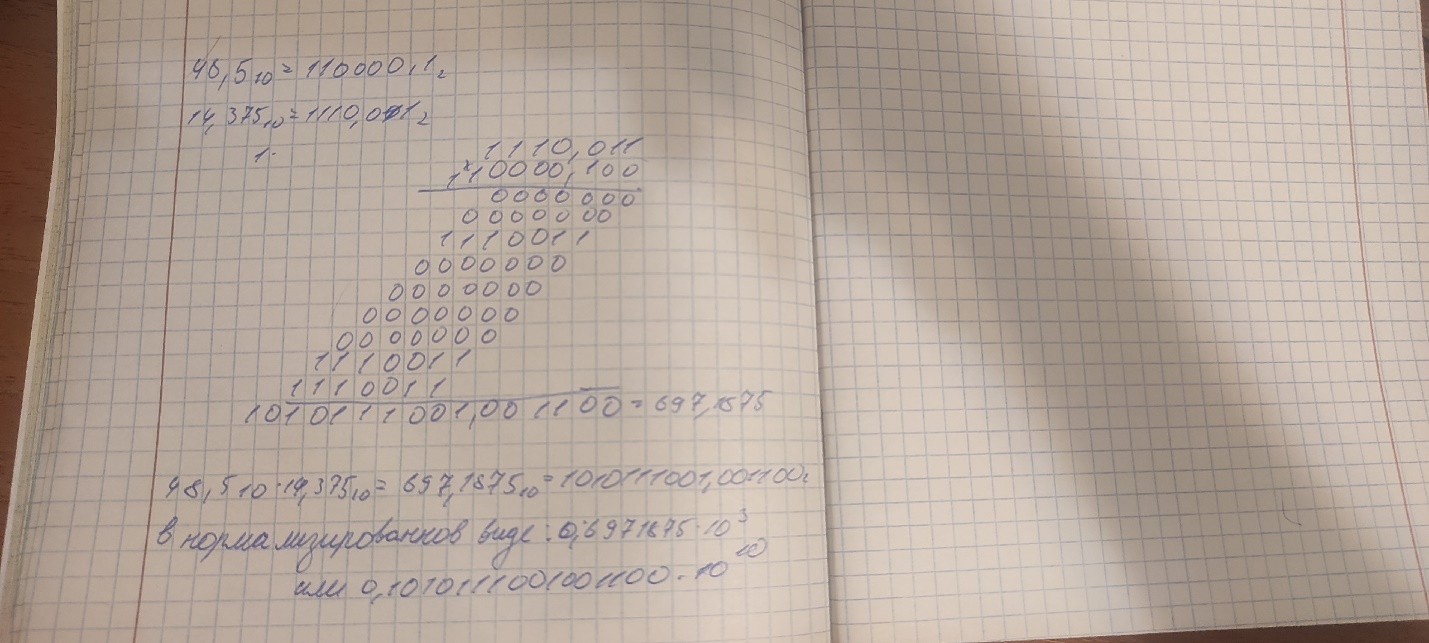 48,5₁₀ = 110000,1₂
14,375₁₀ = 1110,011₂
1.
1110,011
×
110000,100
0000000
0000000
1110011
0000000
0000000
0000000
0000000
1110011
1110011
1010111001,001100 = 697,1875
48,5₁₀ · 14,375₁₀ = 697,1875₁₀ = 1010111001,001100₂
в нормализированков виде: 0,6971875 · 10³
или 0,1010111001001100 · 10¹⁰